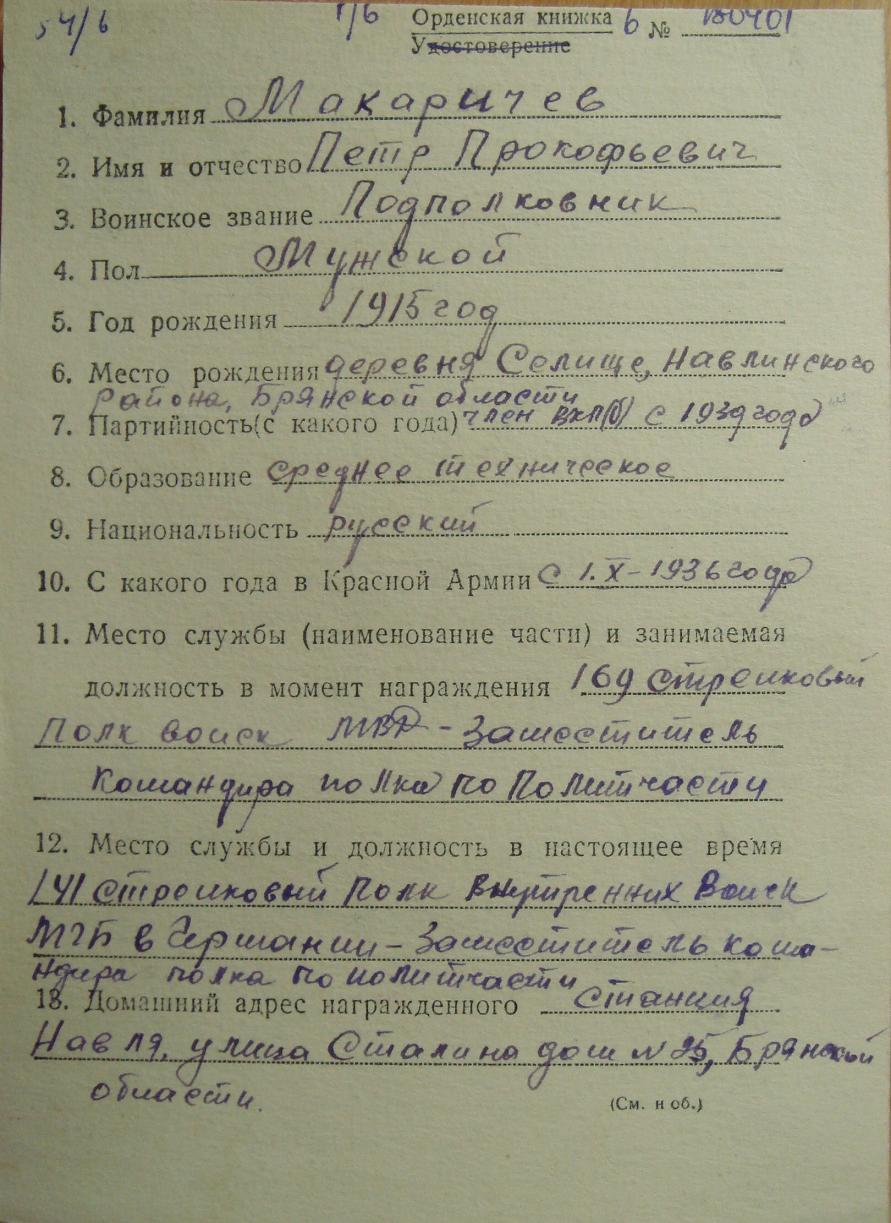 54/6 1/6 Орденская книжка Б № 180401
Удостоверение
1. Фамилия Макаричев
2. Имя и отчество Петр Прокофьевич
3. Воинское звание Подполковник
4. Пол Мужской
5. Год рождения 1915 год
6. Место рождения деревня Селище, Навлинского
района, Брянской области
7. Партийность (с какого года) член ВКП(б) с 1939 года
8. Образование среднее техническое
9. Национальность русский
10. С какого года в Красной Армии с 1.X-1936 года
11. Место службы (наименование части) и занимаемая
должность в момент награждения 169 стрелковый
Полк войск МВД - Заместитель
Командира полка по Политчасти
12. Место службы и должность в настоящее время
141 Стрелковый Полк Внутренних Войск
МГБ в Германии - Заместитель кома-
ндира полка по политчасти
13. Домашний адрес награжденного Станция
Навля, улица Сталина дом № 25, Брянской
области.
(См. н об.)